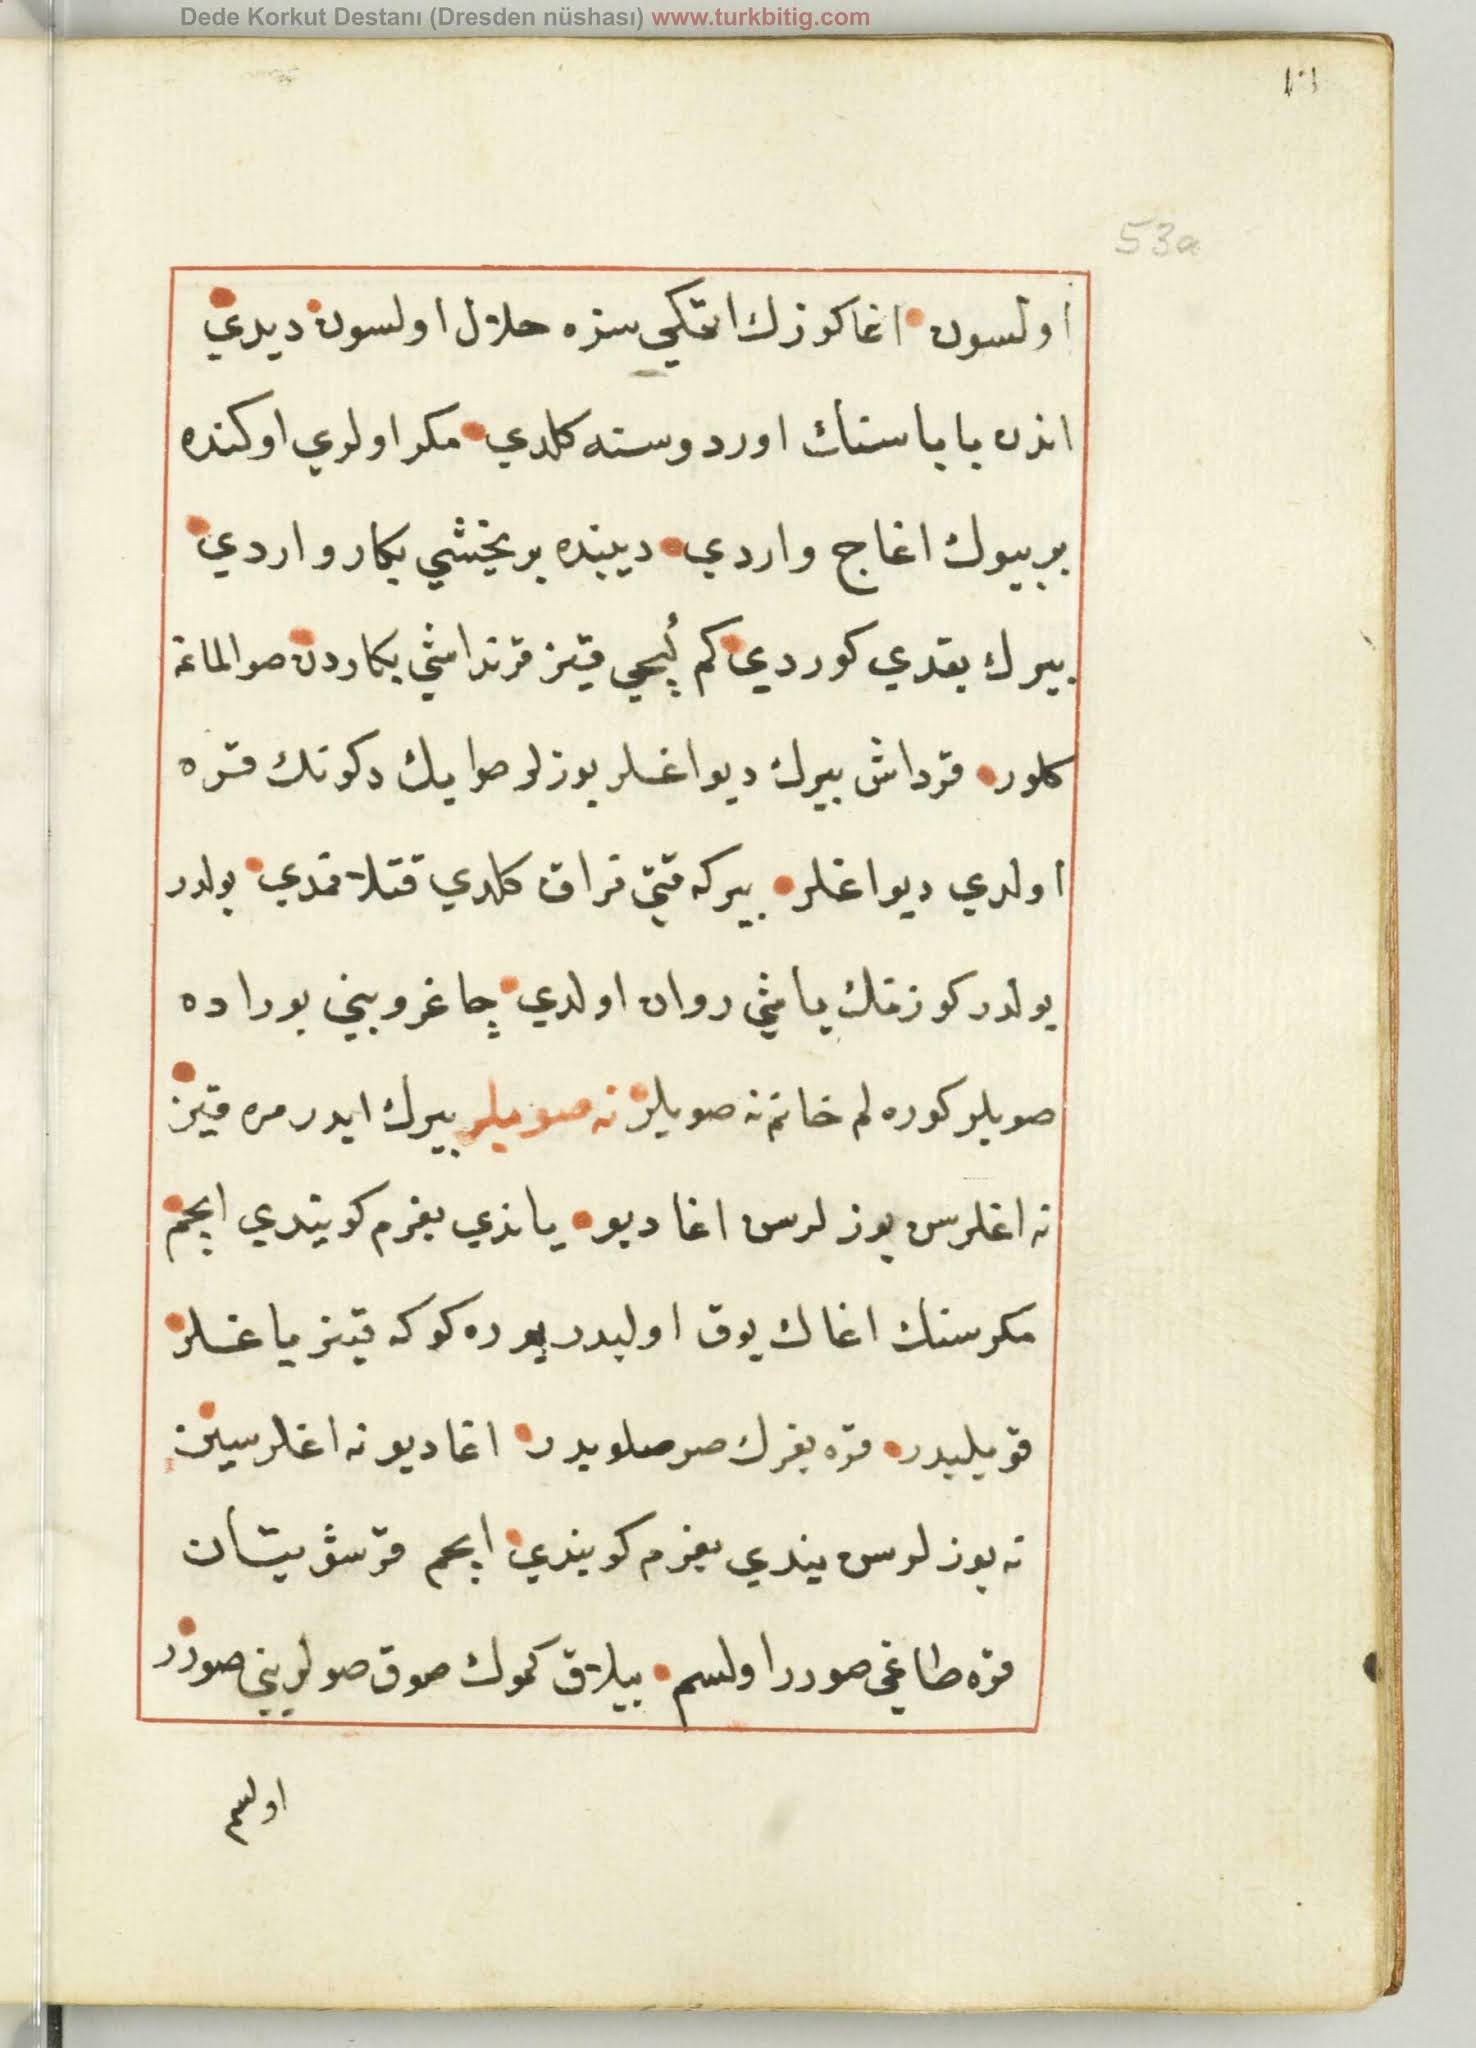 Dede Korkut Destanı (Dresden nüshası) www.turkbitig.com
١٠١
53a
اولسون اغاكوزك اتمكي سزه حلال اولسون ديدي
اندن باباسنك اوردوسنه كلدي مكر اولري اوكنده
بر بيوك اغاج واردي ديبنده بر يخشي بكار واردي
بيرك بقدي كوردي كم كيچي قيز قرنداشي بكاردن صو الماغه
كلور قرداش بيرك ديو اغلر بوزلر صوايك دكونك قره
اولدي ديو اغلر بيركه قتي فراق كلدي قتلانمدي بولدر
بولدر كوزنك ياشي روان اولدي چاغروبني بوراده
صويلر كوره لم خانم نه صويلر نه صويلر بيرك ايدر مره قيز
نه اغلرسن بوزلرسن اغا ديو ياندي بغرم كويندي ايچم
مكر سنك اغاك يوق اولبدر يوره كوكه قينر ياغلر
قويلبدر قره بغرك صرصلوبدر اغا ديو نه اغلرسين
نه بوزلرسن يندي بغرم كويندي ايچم قرشو يتان
قره طاغي صورر اولسم بيلاق كموك صوق صولريني صورر
اولسم